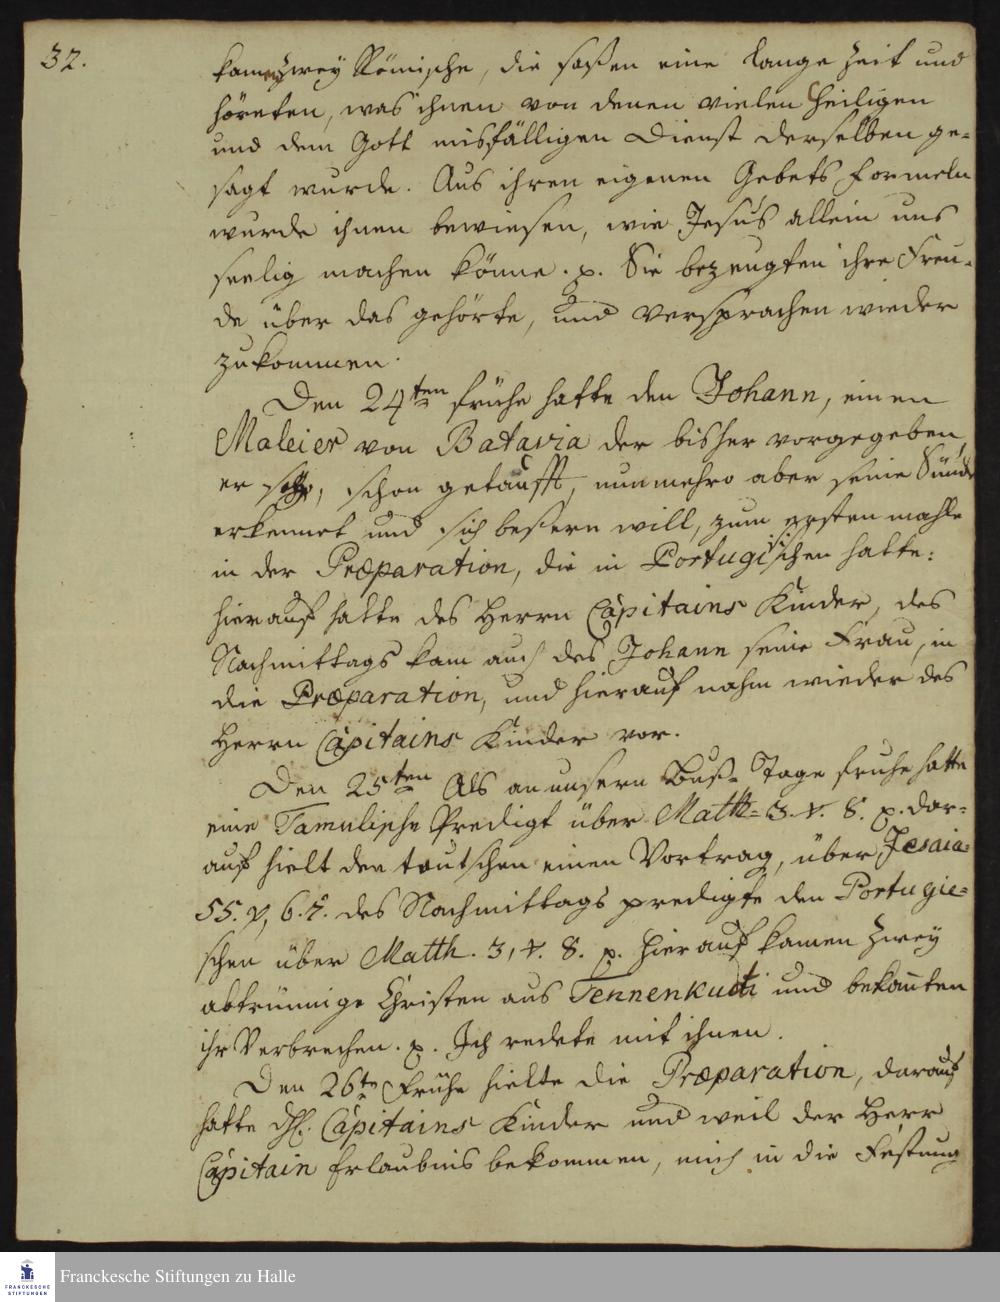 32.
kamen zwey Römische, die saßen eine lange Zeit und
höreten, was ihnen von denen vielen Heiligen
und dem Gott misfälligen Dienst derselben ge-
sagt wurde. Aus ihren eigenen Gebets formeln
wurde ihnen bewiesen, wie Jesus allein uns
seelig machen könne. p. Sie bezeugten ihre Freu-
de über das gehörte, und versprachen wieder
zukommen.
Den 24ten frühe hatte den Johann, einen
Maleier von Batavia der bisher vorgegeben,
er sey, schon getaufft, nunmehro aber seine Sünde
erkennet und sich beßern will, zum ersten mahle
in der Præparation, die in Portugisischen hatte:
hierauf hatte des Herrn Capitains Kinder, des
Nachmittags kam auch des Johann seine Frau, in
die Præparation, und hierauf nahm wieder des
Herrn Capitains Kinder vor.
Den 25ten Als an unsern Buß-Tage fruhe hatte
eine Tamulische Predigt über Matth. 3. v. 8. p. dar-
auf hielt den teutschen einen Vortrag, über Jesaia-
55. v, 6.7. des Nachmittags predigte den Portugie-
schen über Matth. 3, v. 8. p. hierauf kamen zwey
abtrünnige Christen aus Tennenkudi und bekan̄ten
ihr Verbrechen. p. Ich redete mit ihnen.
Den 26te frühe hielte die Præparation, darauf
hatte Capitains Kinder und weil der Herr
Capitain Erlaubnis bekommen, mich in die Festung
FRANCKESCHE
STIFTUNGEN
Franckesche Stiftungen zu Halle